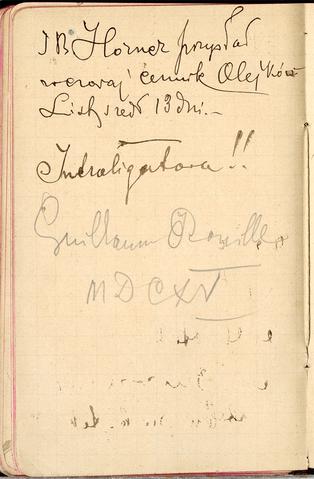 J B Horner przysłał
wczoraj cennik Olejków
List szedł 13 dni.—
Introligatora!!
Guillaume Roville
MDCXV